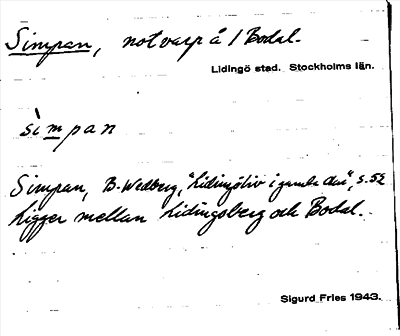 Simpan, notvarp å / Bodal.
Lidingö stad. Stockholms län.
sìmpan
Simpan, B. Wedberg, "Lidingöliv i gamla dar", s. 52
Ligger mellan Lidingsberg och Bodal.
Sigurd Fries 1943.